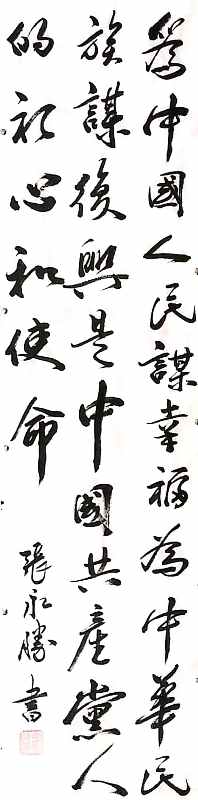 為中國人民謀幸福為中華民
族謀復興是中國共產黨人
的初心和使命
張永勝書